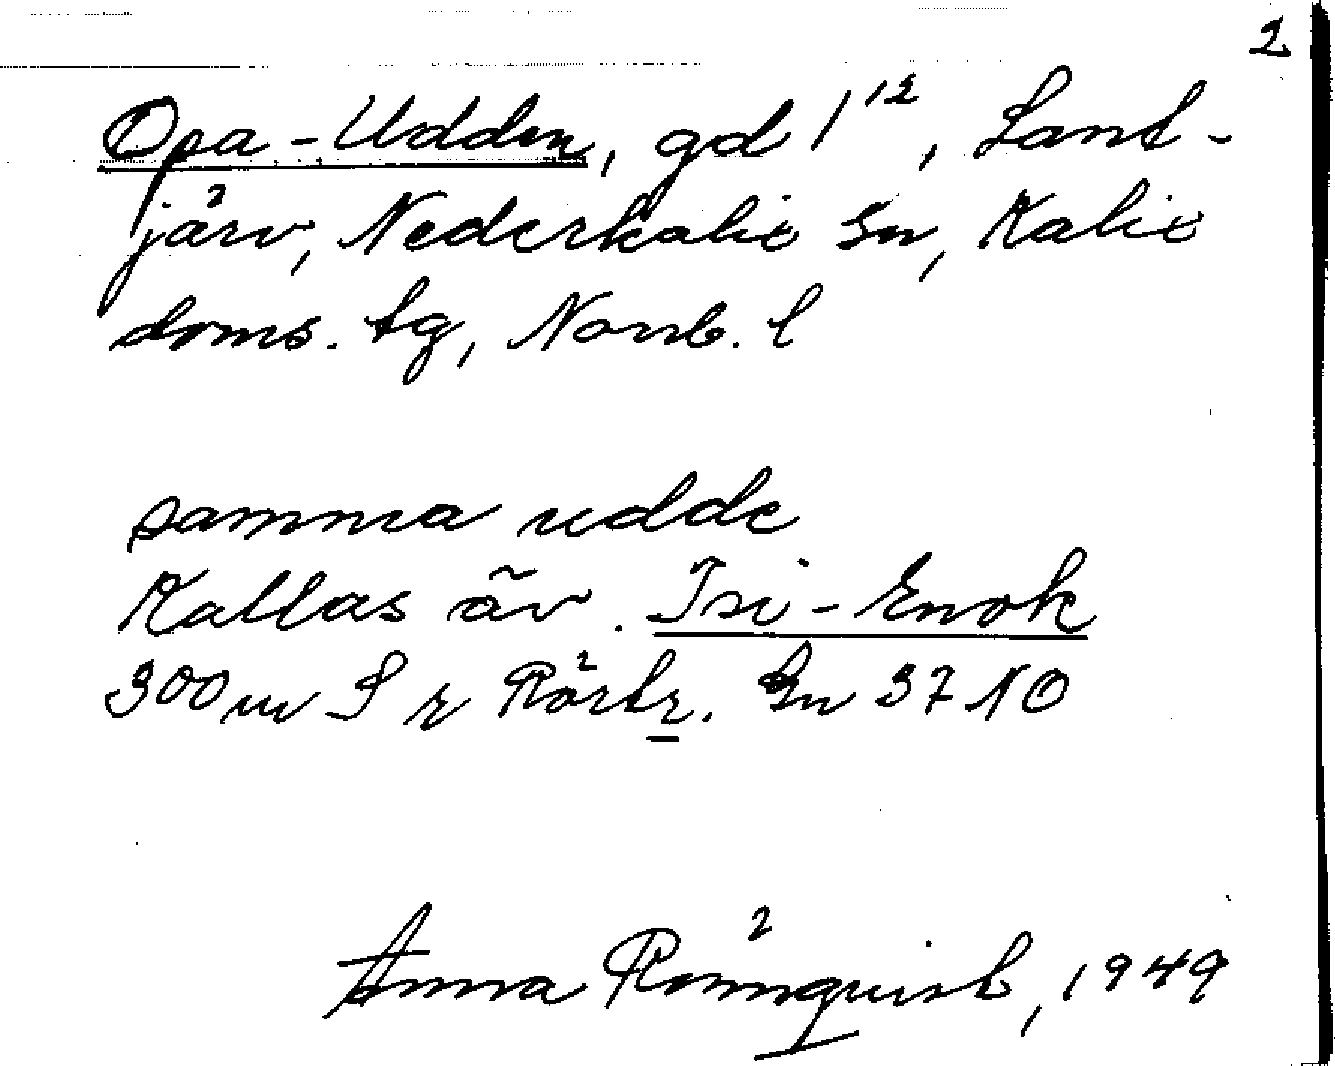 2
Opa-Udden, gd 1¹², Sant-
järv, Nederkalix sn, Kalix
doms. tg, Norrb. l
samma udde
Kallas äv. Isi-Enok
300 m S r Rörtr. Sn 37 NO
Anna Rönnquist, 1949